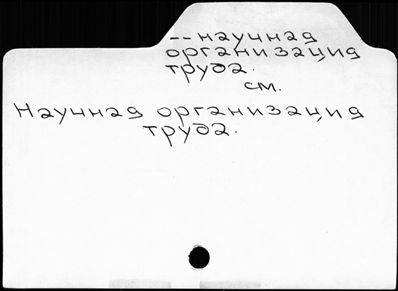 -- научная
организация
труда.
см.
Научная организация
труда.